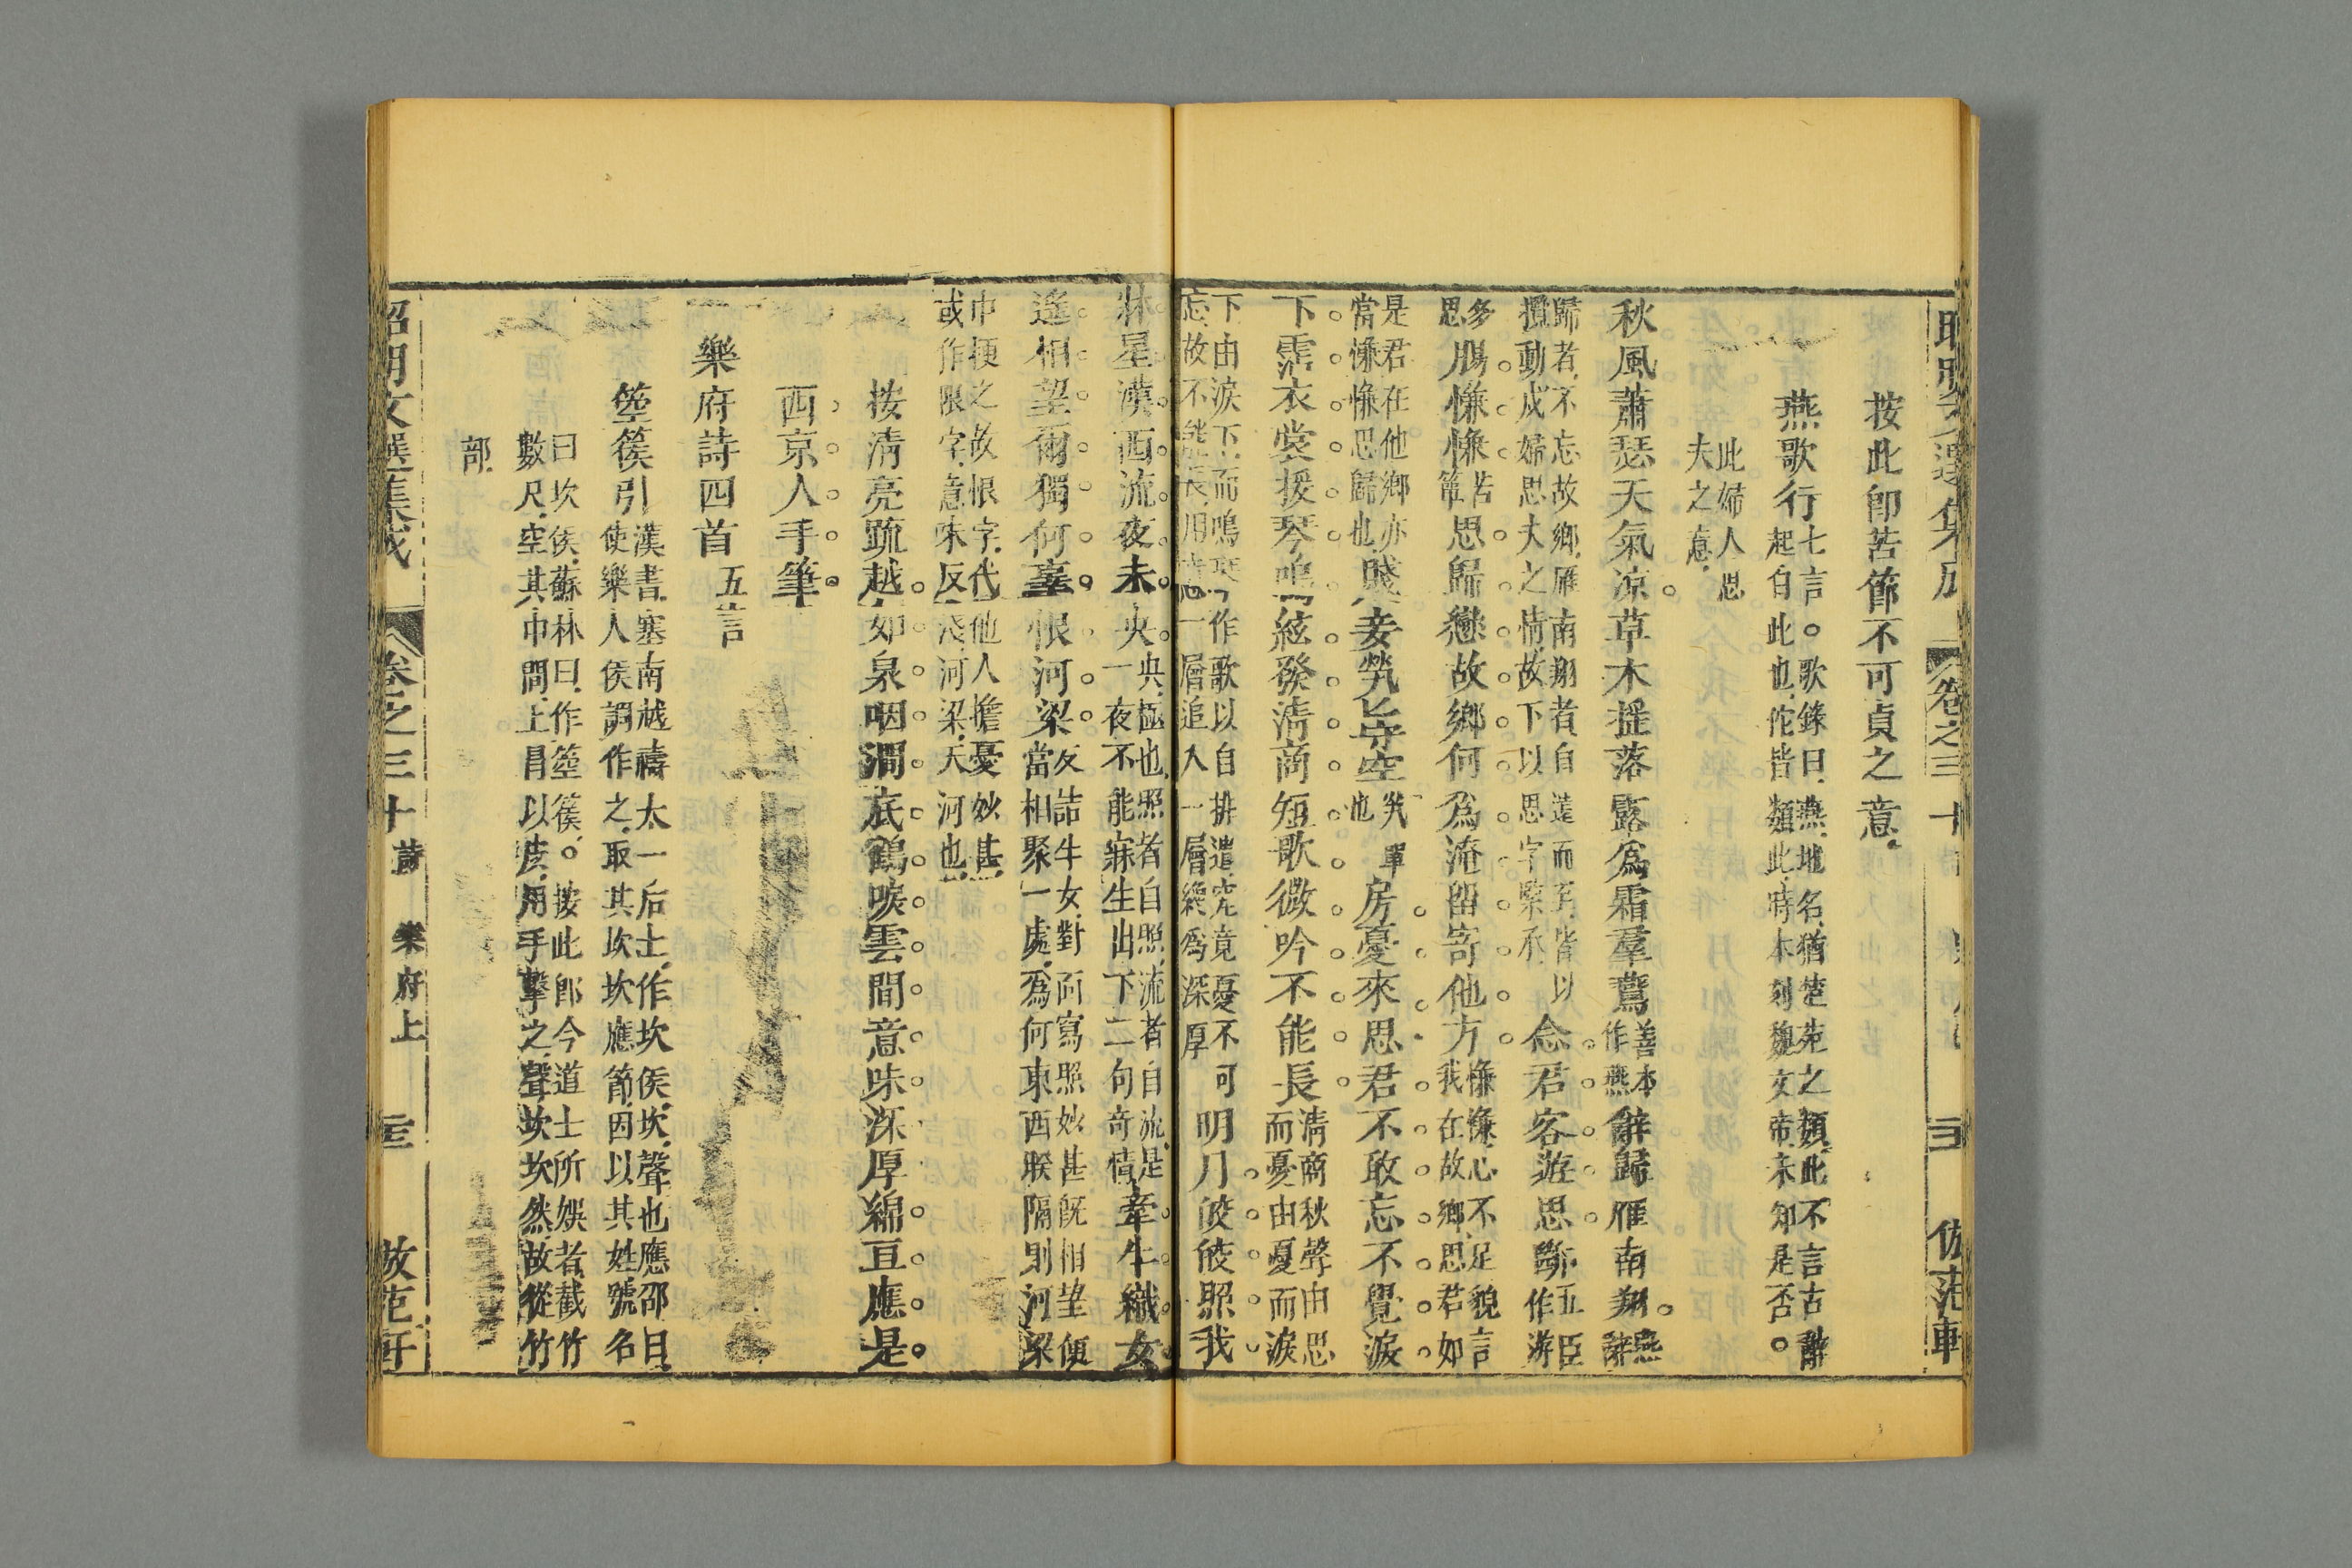 按此即苦節不可貞之意
燕歌行七言。歌錄曰燕地名猶楚苑之類此不言古辭
起自此也佗皆類此時本刻魏文帝未知是否。
此婦人思
夫之意
秋風蕭瑟天氣涼。草木搖落露爲霜羣鷰善本作燕辭歸雁南翔。燕辭
歸者不忘故鄉雁南翔者自遠而至皆以
擬動成婦思夫之情故下以思字緊承念君客遊思斷五臣作游
多思腸慊慊苦簟思歸戀故鄉何爲淹留寄他方慊慊心不足貌言
我在故鄉思君如
是君在他鄉亦
當慊慊思歸也賤妾煢煢守空煢單也房憂來思君不敢忘不覺淚
下霑衣裳援琴鳴絃發清商短歌微吟不能長清商秋聲由思
而憂由憂而淚
下由淚下而鳴琴作歌以自排遣究竟憂不可
忘故不能長用情四一層追入一層繞爲深厚明月皎皎照我
牀星漢西流夜未央央極也照者自照流者自流是
一夜不能寐生出下二句奇情牽牛織女
遙相望爾獨何辜恨河梁反詰牛女對面寫照妙甚既相望便
當相聚一處爲何東西睽隔則河梁
巾梗之故恨字代他人擔憂妙甚
或作限字意味反淺河梁天河也
按清亮䟽越如泉咽澗底鶴唳雲間意味深厚綿亘應是
西京人手筆
樂府詩四首五言
箜篌引漢書塞南越禱太一后土作坎侯坎聲也應邵曰
使樂人侯調作之取其坎坎應節因以其姓號名
曰坎侯蘇林曰作箜篌。按此卽今道士所娛者截竹
數尺空其巾間上冒以皮用手擊之聲坎坎然故從竹
部
昭明文選集成 卷之三十 詩 樂府上 倣范軒